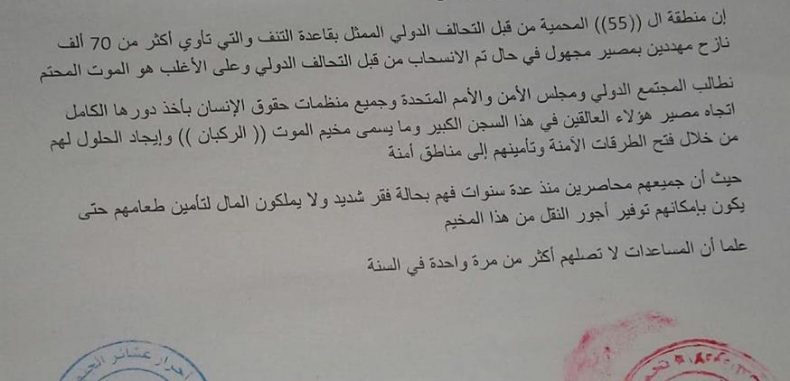 إن منطقة ال ((55)) المحمية من قبل التحالف الدولي الممثل بقاعدة التنف والتي تأوي أكثر من 70 ألف
نازح مهددين بمصير مجهول في حال تم الانسحاب من قبل التحالف الدولي وعلى الأغلب هو الموت المحتم
نطالب المجتمع الدولي ومجلس الأمن والأمم المتحدة وجميع منظمات حقوق الإنسان بأخذ دورها الكامل
اتجاه مصير هؤلاء العالقين في هذا السجن الكبير وما يسمى مخيم الموت (( الركبان )) وإيجاد الحلول لهم
من خلال فتح الطرقات الآمنة وتأمينهم إلى مناطق أمنة
حيث أن جميعهم محاصرين منذ عدة سنوات فهم بحالة فقر شديد ولا يملكون المال لتأمين طعامهم حتى
يكون بإمكانهم توفير أجور النقل من هذا المخيم
علما أن المساعدات لا تصلهم أكثر من مرة واحدة في السنة
احرار عشائر